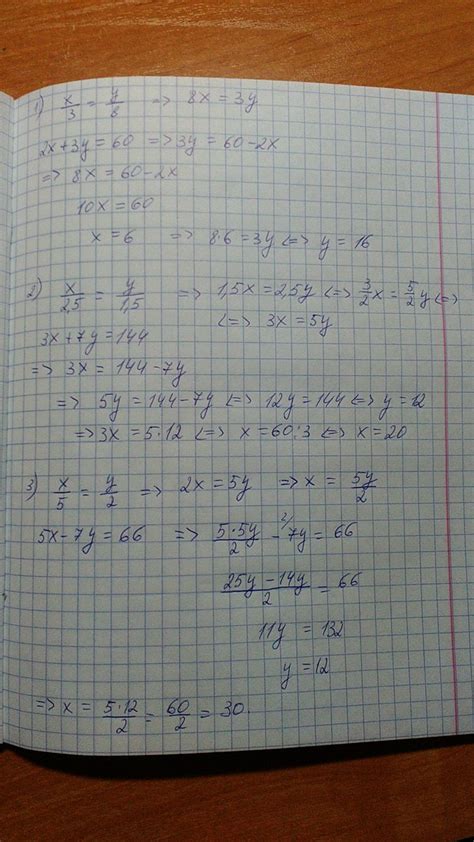 1) x/3 = y/8 => 8x = 3y
2x+3y = 60 => 3y = 60-2x
=> 8x = 60-2x
10x = 60
x = 6 => 8·6 = 3y <=> y = 16
2) x/25 = y/1,5 => 1,5x = 2,5y <=> 3/2 x = 5/2 y <=>
<=> 3x = 5y
3x + 7y = 144
=> 3x = 144 - 7y
=> 5y = 144 - 7y <=> 12y = 144 <=> y = 12
=> 3x = 5·12 <=> x = 60:3 <=> x = 20
3) x/5 = y/2 => 2x = 5y => x = 5y/2
5x - 7y = 66 => 5·5y/2 - 2/7y = 66
25y - 14y/2 = 66
11y = 132
y = 12
=> x = 5·12/2 = 60/2 = 30.